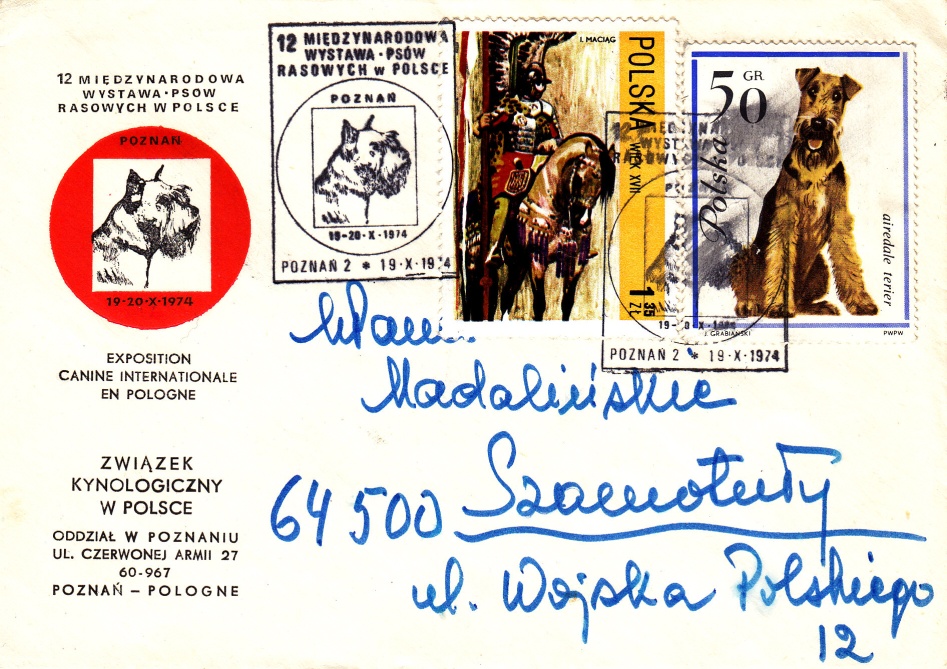 12 MIĘDZYNARODOWA
WYSTAWA·PSÓW
RASOWYCH W POLSCE
POZNAŃ
19-20·X·1974
EXPOSITION
CANINE INTERNATIONALE
EN POLOGNE
ZWIĄZEK
KYNOLOGICZNY
W POLSCE
ODDZIAŁ W POZNANIU
UL. CZERWONEJ ARMII 27
60-967
POZNAŃ – POLOGNE
12 MIĘDZYNARODOWA
WYSTAWA·PSÓW
RASOWYCH W POLSCE
POZNAŃ
19-20·X·1974
POZNAŃ 2 * 19·X·1974
I. MACIĄG
POLSKA WIEK XVII
1 35 ZŁ
50 GR
Polska
airedale terier
J. GRABIAŃSKI
PWPW
POZNAŃ 2 * 19·X·1974
Madalińskie
64500 Szamotuły
ul. Wojska Polskiego
12